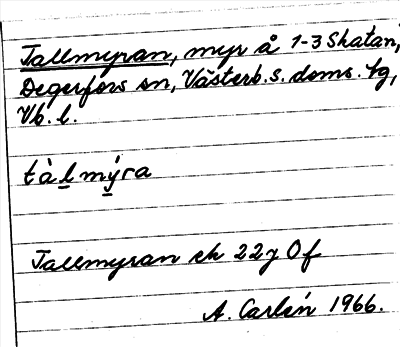 Tallmyran, myr å 1-3 Skatan,
Degerfors sn, Västerb. s. doms. tg,
Vb. l.
tàlmýra
Tallmyran ek 22 j Of
A. Carlén 1966.